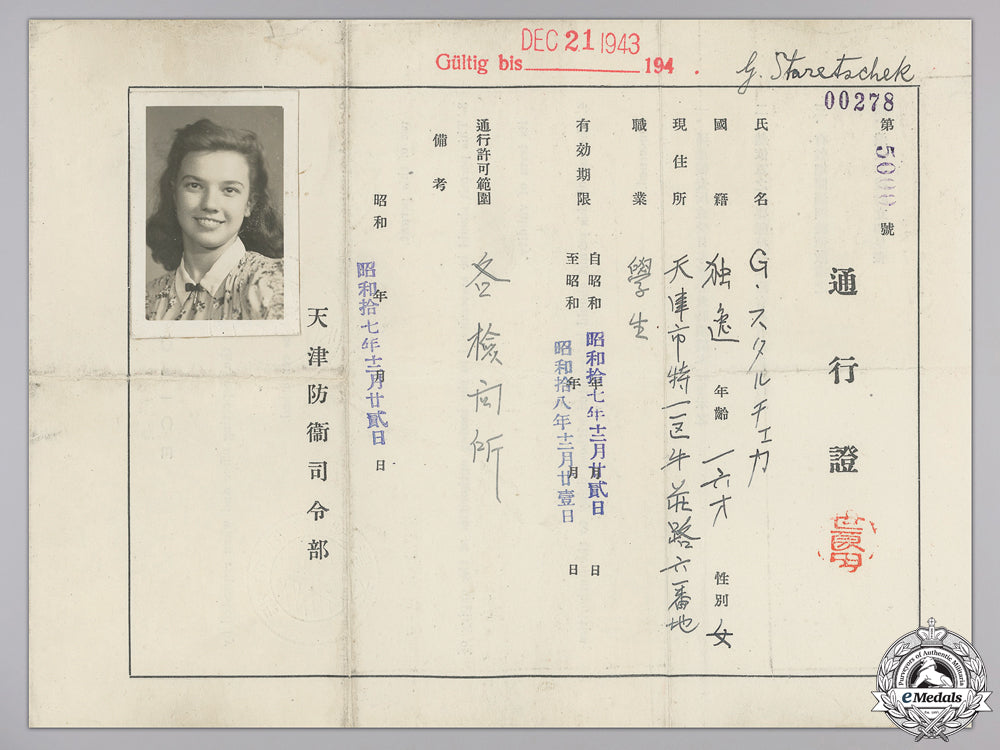 DEC 21 1943
Gültig bis 194 .
G. Staretschek
00278
第 5000 號
通行證
氏名 G・スタルチェカ
國籍 独逸 年齢 一六才 性別 女
現住所 天津市特一区牛莊路六一番地
職業 學生
有効期限
自昭和 年 月 日
昭和拾七年十二月廿貳日
至昭和 年 月 日
昭和拾八年十二月廿壹日
通行許可範圍 各檢問所
備考
昭和 年 月 日
昭和拾七年十二月廿貳日
天津防衞司令部
Purveyors of Authentic Militaria
eMedals